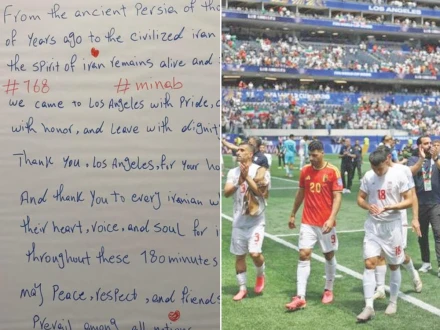 From the ancient Persia of tho
of Years ago to the civilized iran
the spirit of iran remains alive and
#168 #minab
we came to Los Angeles with Pride,
with honor, and Leave with dignit
Thank You, Los Angeles, for Your ho
And thank You to every iranian w
their heart, voice, and soul for i
throughout these 180 minutes
may Peace, respect, and friends
Prevail among all nations
LOS ANGELES
20
9
9
18
18